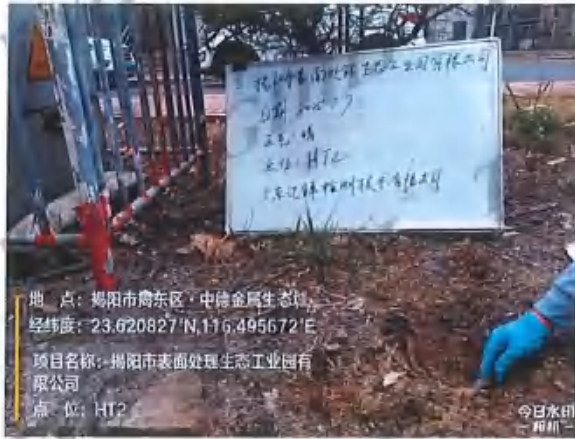 揭阳市表面处理生态工业园有限公司
日期
天气: 晴
点位: HT2
检测技术有限公司
地 点: 揭阳市揭东区·中德金属生态城
经纬度: 23.620827°N,116.495672°E
项目名称: 揭阳市表面处理生态工业园有
限公司
点 位: HT2
今日水印
相机